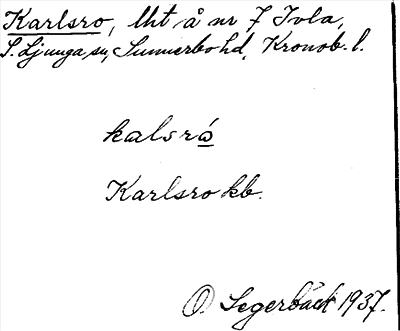 Karlsro, lht å nr 7 Tvla,
S. Ljunga sn, Sunnerbo hd, Kronob. l.
kalsró
Karlsro kb.
O. Segerbäck 1937.